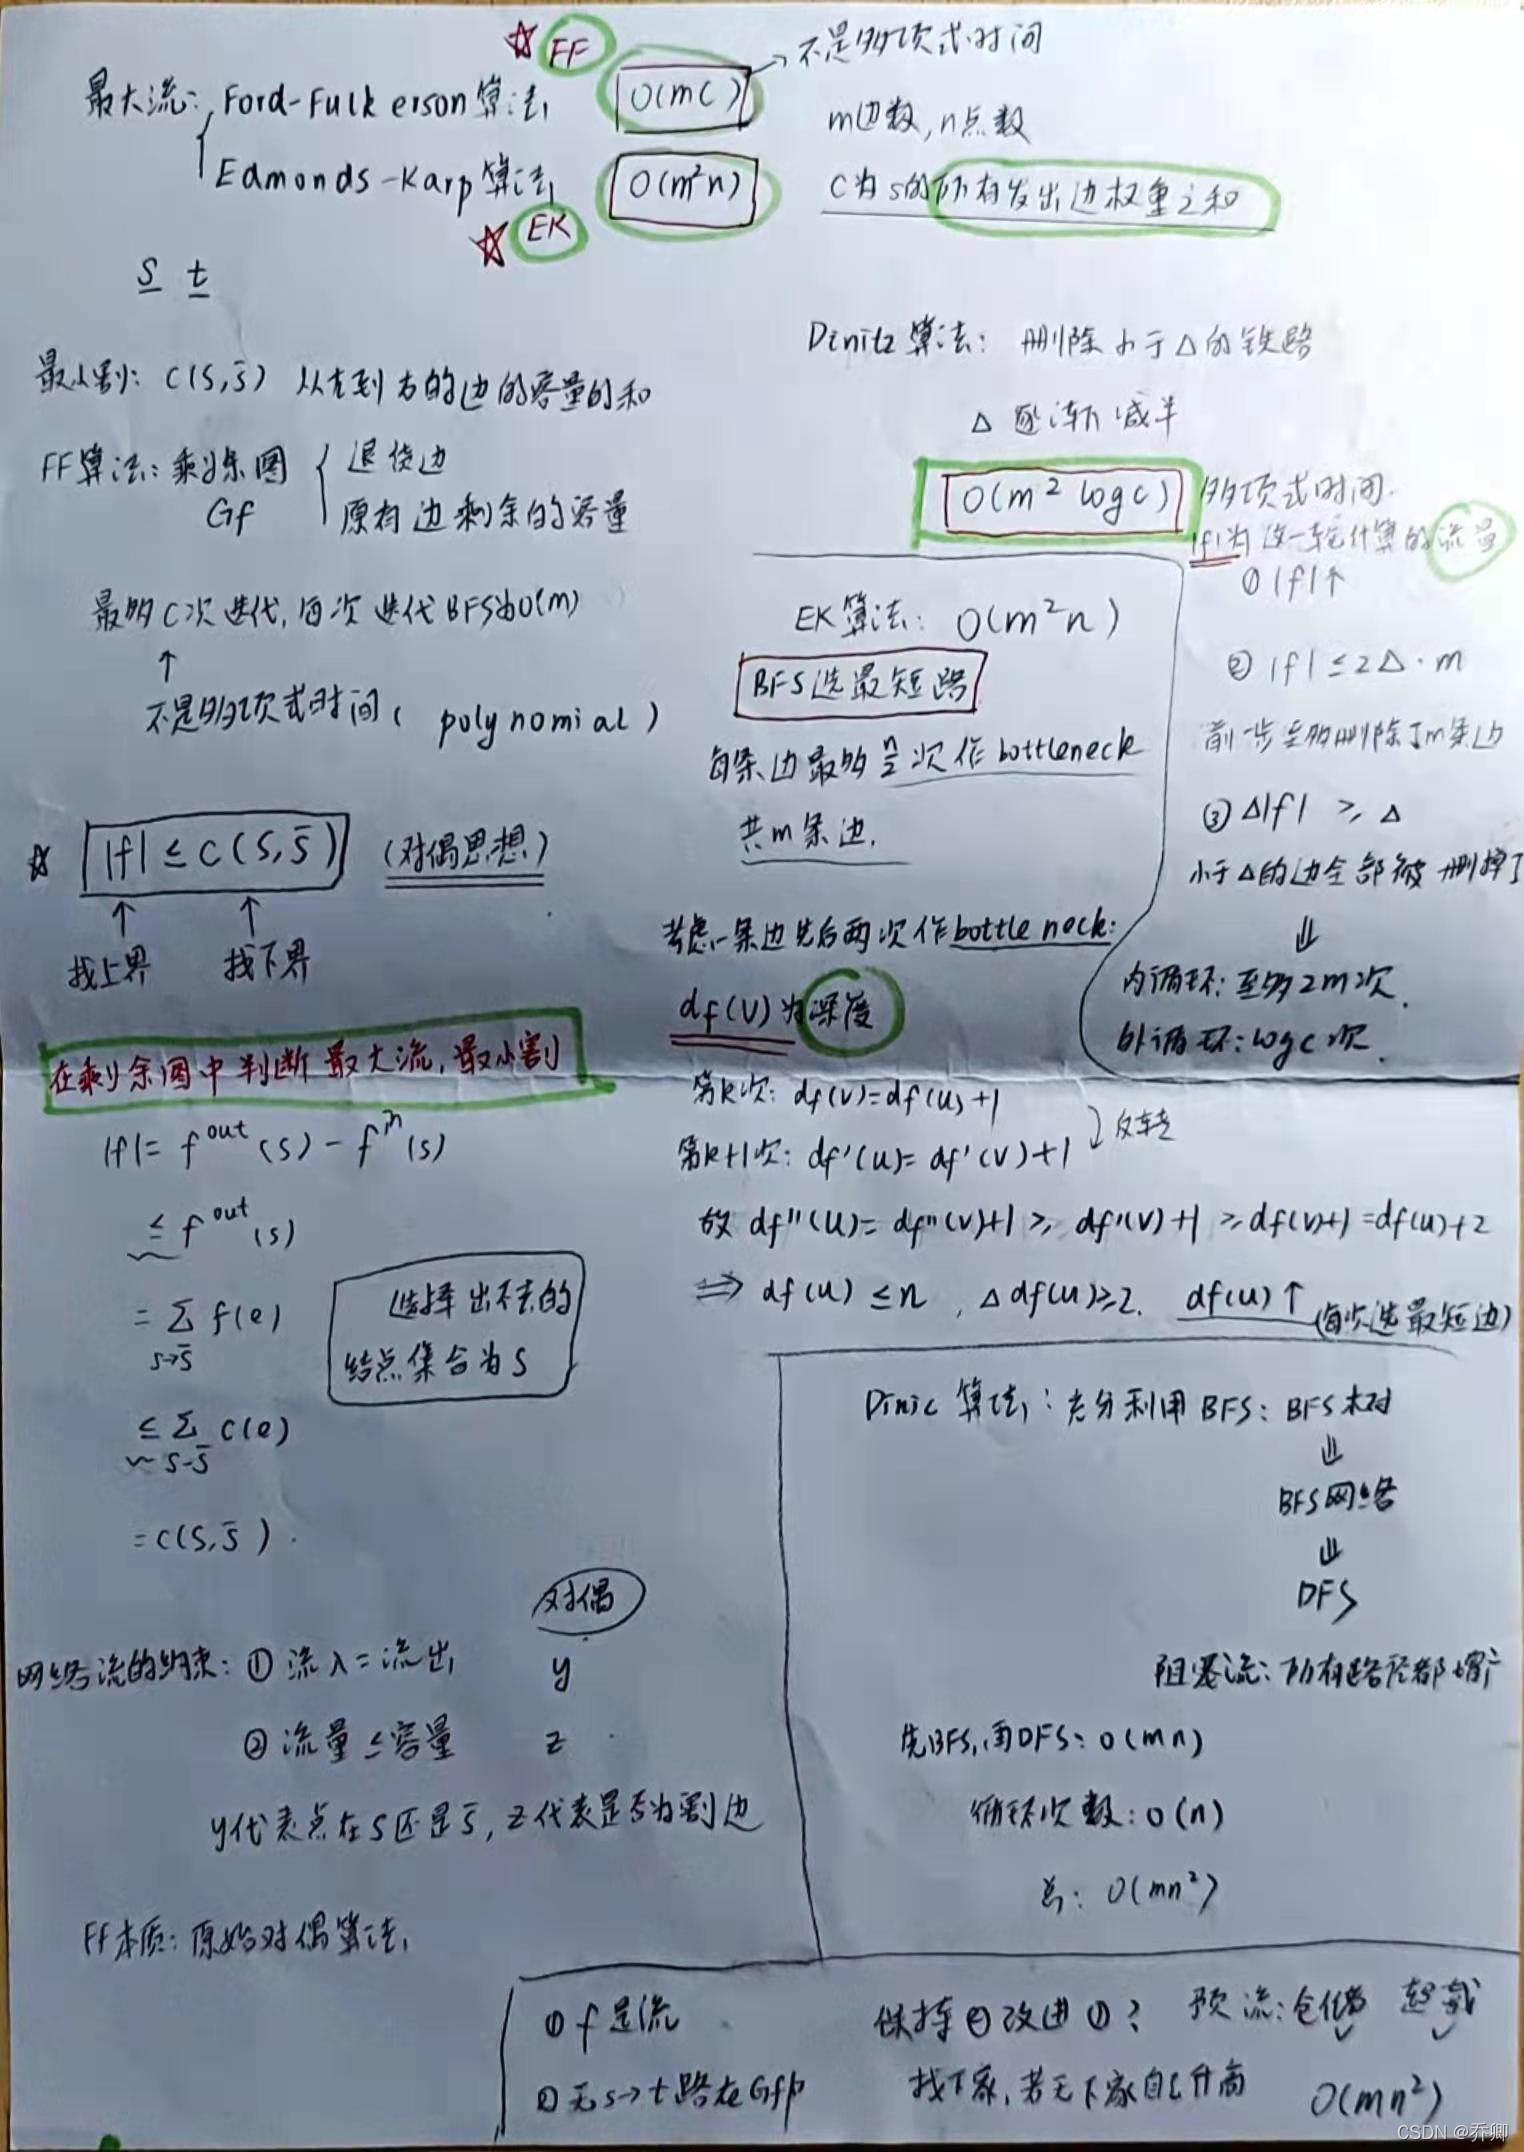 ☆ FF
最大流: Ford-Fulkerson算法 O(mC) → 不是多项式时间
Edmonds-Karp算法 O(m²n)
☆ EK
m边数,n点数
C为s的所有发出边权重之和
s t
最小割: C(S,S̄) 从左到右的边的容量的和
FF算法: 剩余图 Gf { 退货边
原有边剩余的容量
最多C次迭代,每次迭代BFS为O(m)
↑
不是多项式时间( polynomial )
☆ |f| ≤ C(S,S̄) (对偶思想)
↑ ↑
找上界 找下界
在剩余图中判断最大流,最小割
|f| = f^out(s) - f^in(s)
≤ f^out(s)
= Σ f(e)
S→S̄
≤ Σ C(e)
S-S̄
= C(S,S̄).
选择出不去的
结点集合为S
对偶
网络流的约束: ① 流入=流出 y
② 流量≤容量 z
y代表点在S还是S̄, z代表是否为割边
FF本质: 原始对偶算法
Dinitz算法: 删除小于Δ的铁路
Δ 逐渐减半
O(m² logC) 多项式时间.
|f|为这一轮计算的流量
① |f|↑
② |f| ≤ 2Δ·m
前一步至多删除了m条边
③ Δ|f| ≥ Δ
小于Δ的边全部被删掉了
⇓
内循环: 至多2m次.
外循环: logC次.
EK算法: O(m²n)
BFS选最短路
每条边最多n/2次作bottleneck
共m条边.
考虑一条边先后两次作bottleneck:
df(v)为深度
第k次: df(v)=df(u)+1
第k+1次: df'(u)=df'(v)+1 反转
故 df''(u)=df''(v)+1 ≥ df'(v)+1 ≥ df(v)+1=df(u)+2
⇒ df(u) ≤ n , Δdf(u)≥2. df(u)↑ (每次选最短边)
Dinic算法: 充分利用BFS: BFS树
⇓
BFS网络
⇓
DFS
阻塞流: 所有路径都堵
先BFS,再DFS: O(mn)
循环次数: O(n)
总: O(mn²)
① f是流
② 无s→t路在Gf中
保持②改进①? 预流: 仓储 超载
找下家,若无下家自己升高 O(mn²)
CSDN @乔卿